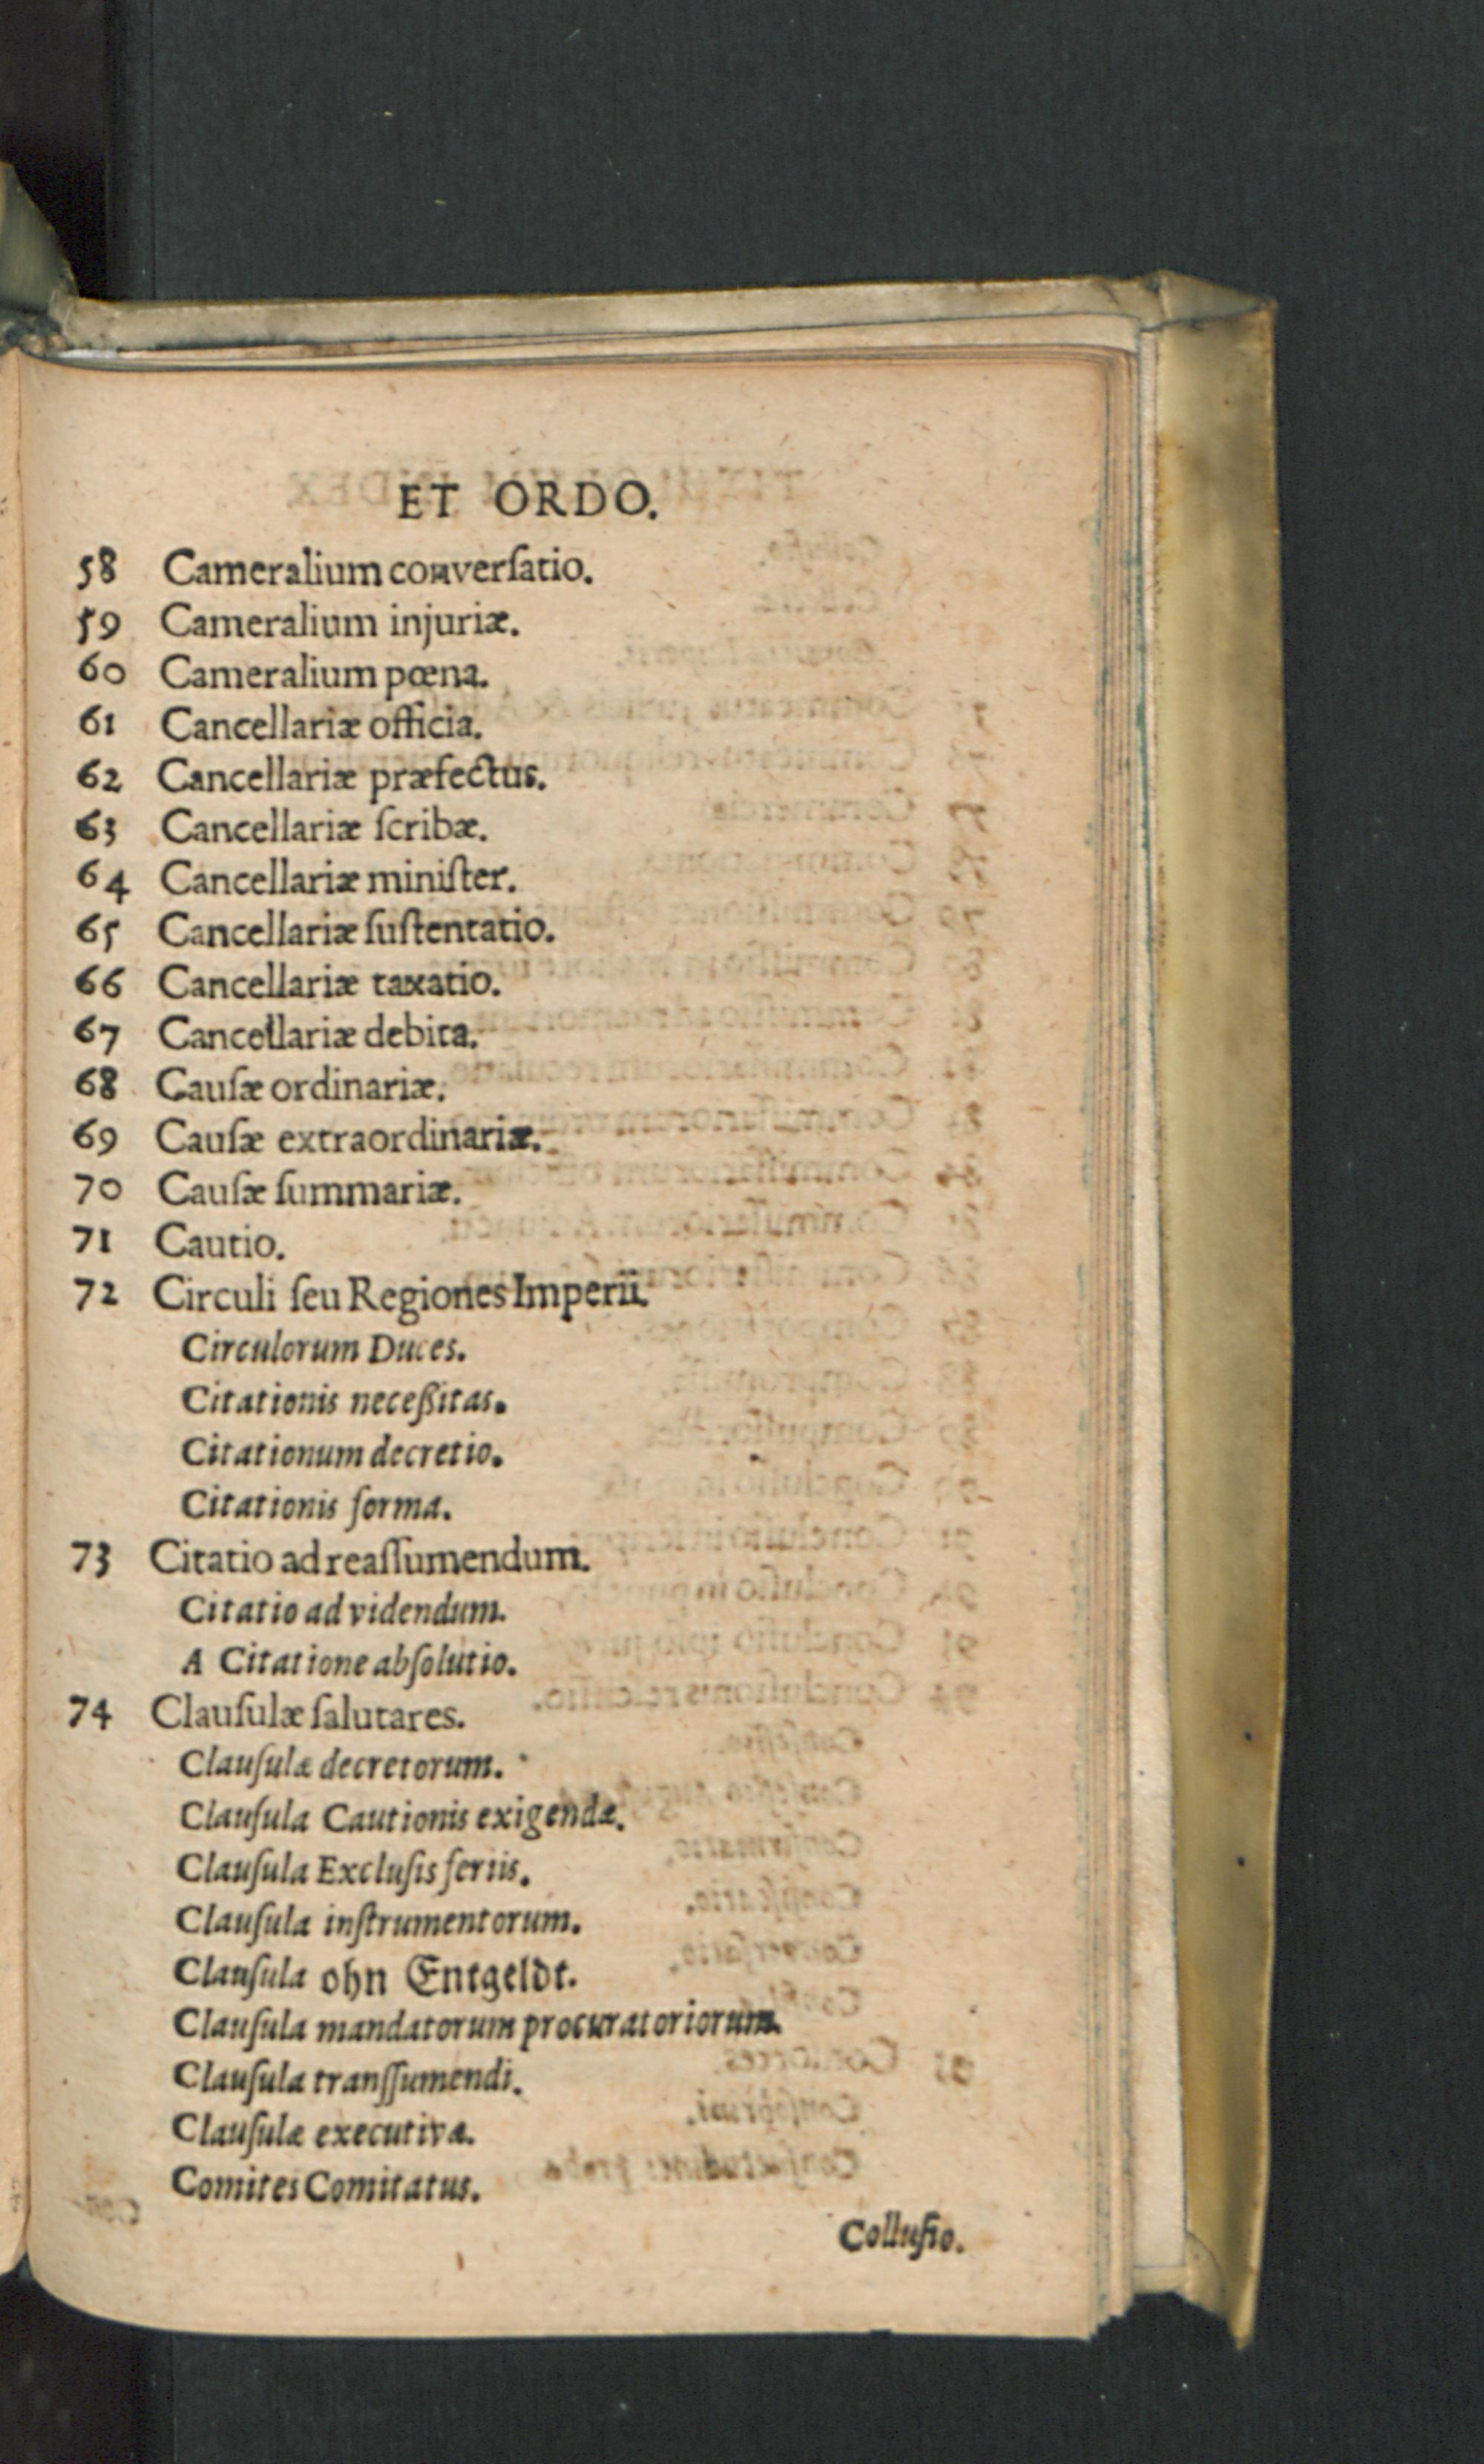 ET ORDO.
58 Cameralium converſatio.
59 Cameralium injuriæ.
60 Cameralium pœna.
61 Cancellariæ officia.
62 Cancellariæ præfectus.
63 Cancellariæ ſcribæ.
64 Cancellariæ miniſter.
65 Cancellariæ ſuſtentatio.
66 Cancellariæ taxatio.
67 Cancellariæ debita.
68 Cauſæ ordinariæ.
69 Cauſæ extraordinariæ.
70 Cauſæ ſummariæ.
71 Cautio.
72 Circuli ſeu Regiones Imperii.
Circulorum Duces.
Citationis neceßitas.
Citationum decretio.
Citationis forma.
73 Citatio ad reaſſumendum.
Citatio ad videndum.
A Citatione abſolutio.
74 Clauſulæ ſalutares.
Clauſulæ decretorum.
Clauſula Cautionis exigendæ.
Clauſula Excluſis feriis.
Clauſula inſtrumentorum.
Clauſula ohn Entgeldt.
Clauſula mandatorum procuratoriorum.
Clauſula tranſſumendi.
Clauſulæ executivæ.
Comites Comitatus.
Colluſio.